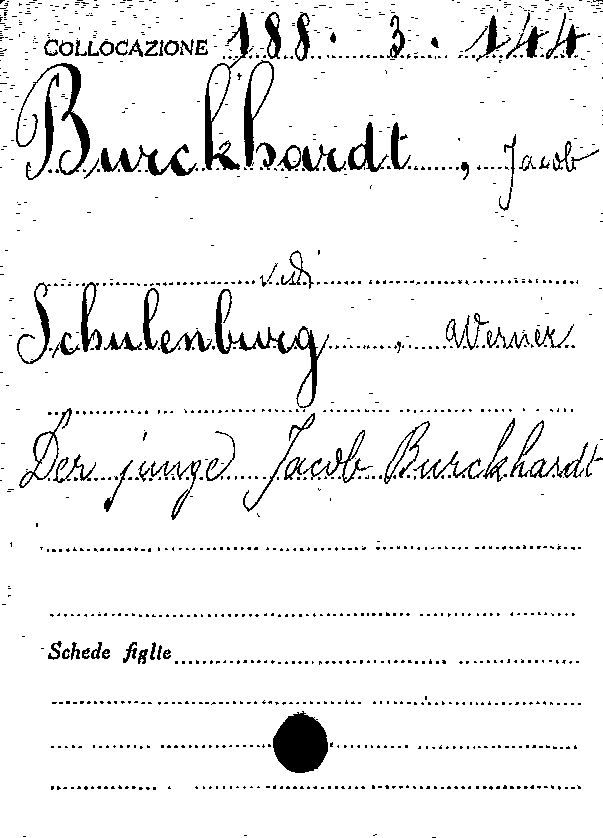 COLLOCAZIONE 188. 3. 144
Burckhardt, Jacob
vedi
Schulenburg, Werner
Der junge Jacob Burckhardt
Schede figlie